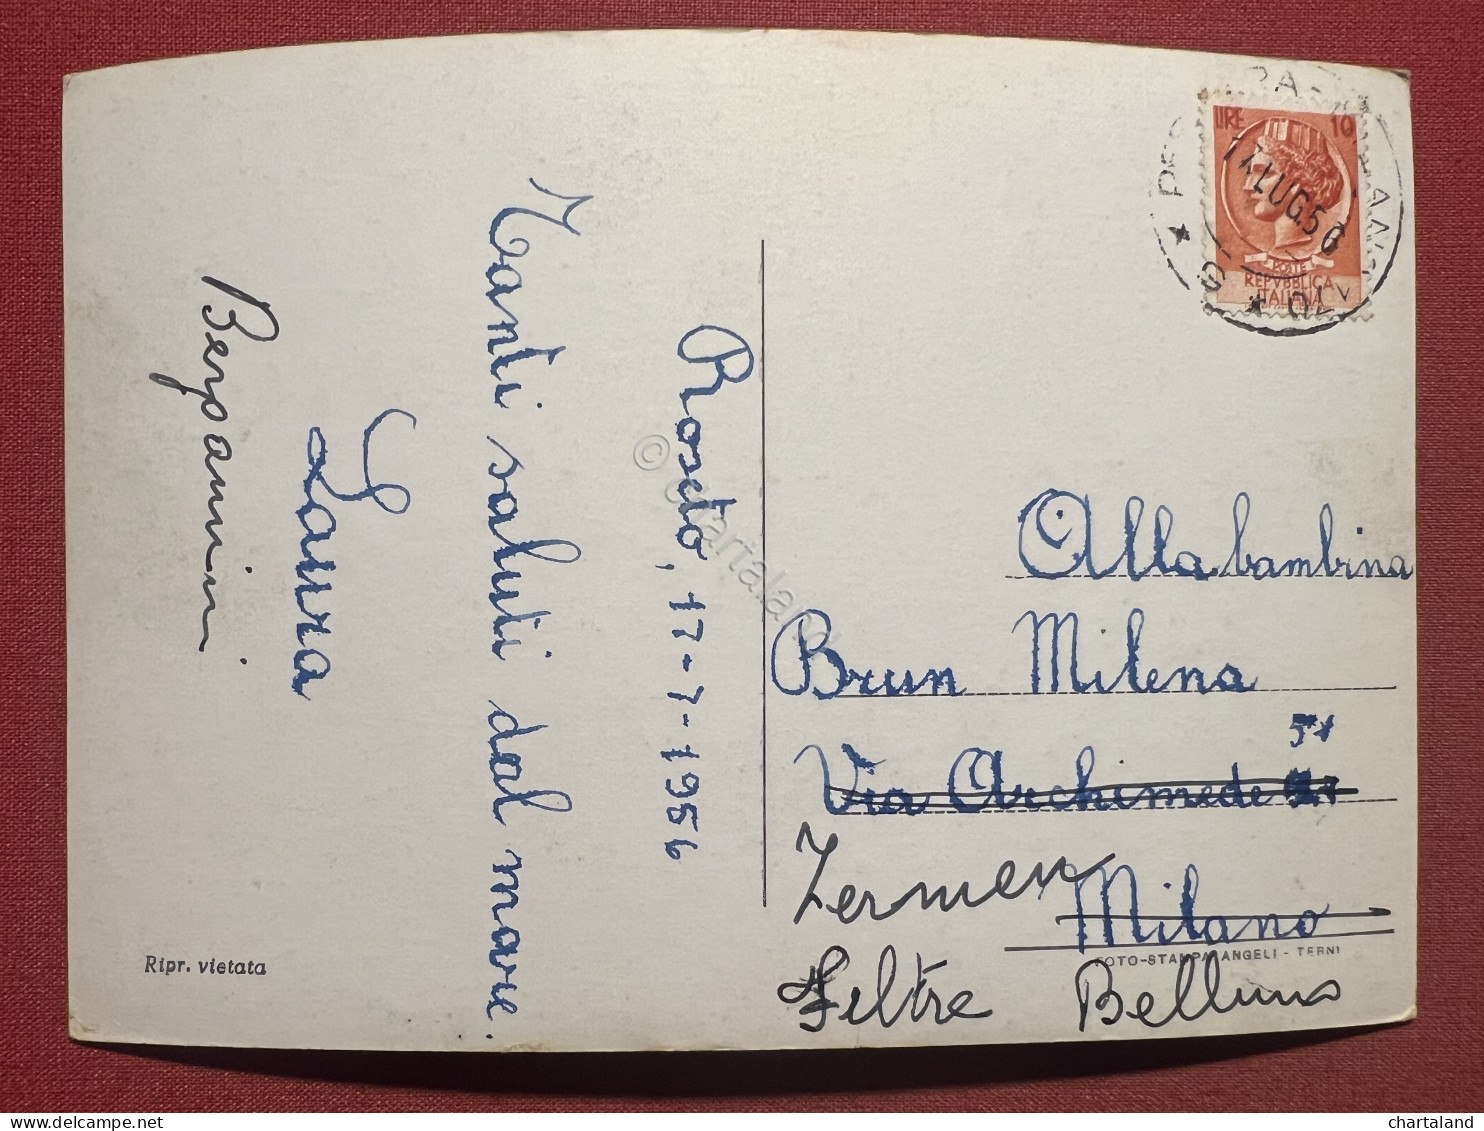 Roseto, 17-7-1956
Tanti saluti dal mare.
Laura
Bergamini
Ripr. vietata
LIRE 10
17 LUG 56
POSTE
REPVBBLICA
ITALIANA
Alla bambina
Brun Milena
51
Via Archimede
Milano
Zermen
Feltre Belluno
FOTO-STAMPA ANGELI - TERNI
© chartaland
chartaland